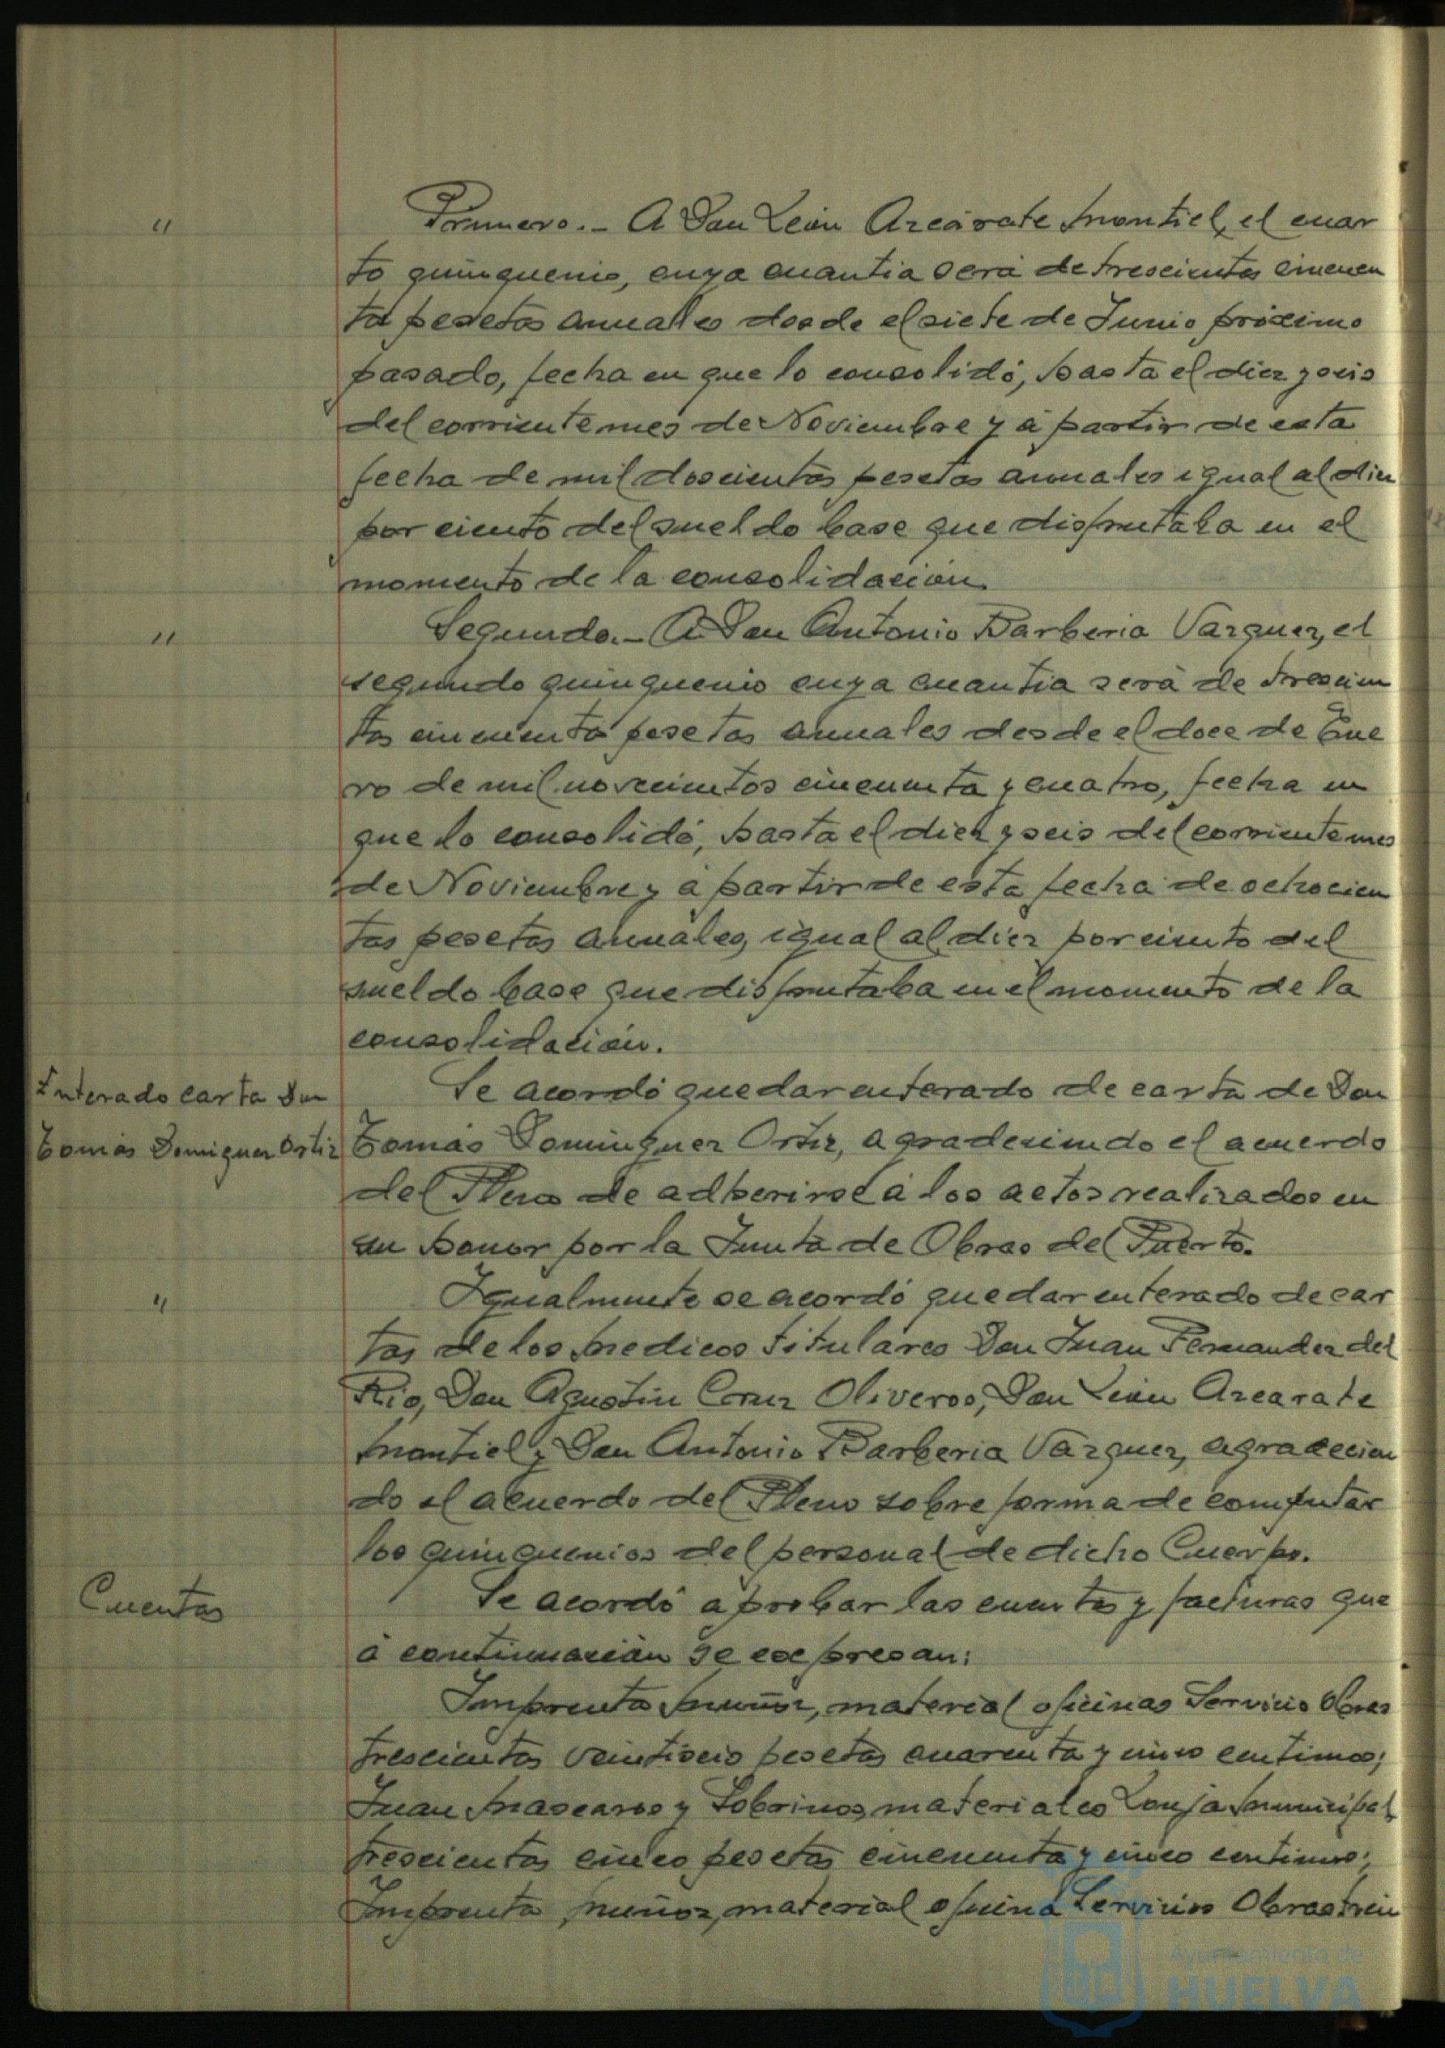 "
Primero.- A Don León Azcárate Montiel, el cuar
to quinquenio, cuya cuantia será de trescientas cincuen
ta pesetas anuales desde el siete de Junio próximo
pasado, fecha en que lo consolidó, hasta el diez y seis
del corriente mes de Noviembre y á partir de esta
fecha de mil doscientas pesetas anuales igual al diez
por ciento del sueldo base que disfrutaba en el
momento de la consolidación.
"
Segundo.- A Don Antonio Barberia Vazquez, el
segundo quinquenio cuya cuantia será de trescien
tas cincuenta pesetas anuales desde el doce de Ene
ro de mil novecientos cincuenta y cuatro, fecha en
que lo consolidó, hasta el diez y seis del corriente mes
de Noviembre y á partir de esta fecha de ochocien
tas pesetas anuales, igual al diez por ciento del
sueldo base que disfrutaba en el momento de la
consolidación.
Enterado carta Don
Tomás Dominguez Ortiz
Se acordó quedar enterado de carta de Don
Tomás Dominguez Ortiz, agradeciendo el acuerdo
del Pleno de adherirse á los actos realizados en
su honor por la Junta de Obras del Puerto.
"
Igualmente se acordó quedar enterado de car
tas de los Medicos titulares Don Juan Fernandez del
Rio, Don Agustin Cruz Oliveros, Don León Azcarate
Montiel y Don Antonio Barberia Vazquez, agradecien
do el acuerdo del Pleno sobre forma de computar
los quinquenios del personal de dicho Cuerpo.
Cuentas
Se acordó aprobar las cuentas y facturas que
á continuación se expresan:
Imprenta Muñoz, material oficinas Servicio Obras
trescientas veintiseis pesetas cuarenta y cinco centimos;
Juan Mascaros y Sobrinos, materiales Lonja Municipal
trescientas cinco pesetas cincuenta y cinco centimos;
Imprenta Muñoz, material oficina Servicios Obras trein
Ayuntamiento de
HUELVA